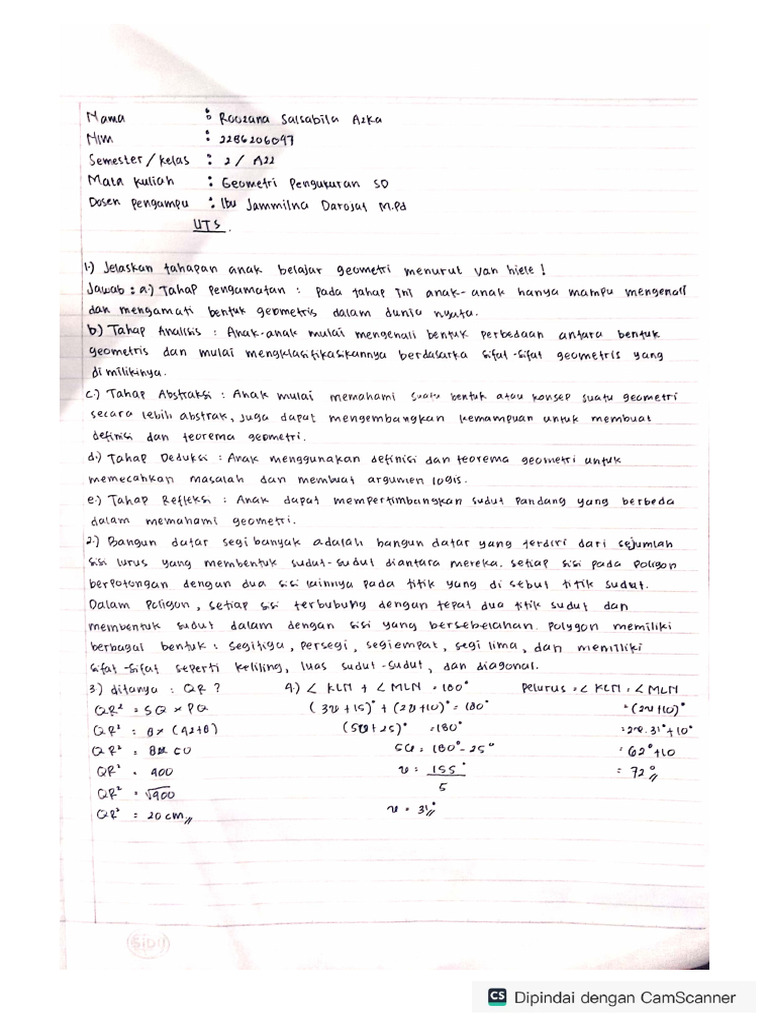 Nama : Roozana Salsabila Azka
NIM : 2286206047
Semester / kelas : 2 / A22
Mata kuliah : Geometri Pengukuran SD
Dosen pengampu : Ibu Jammilna Darojat M.Pd
UTS.
1.) Jelaskan tahapan anak belajar geometri menurut van hiele !
Jawab : a.) Tahap pengamatan : pada tahap ini anak-anak hanya mampu mengenali
dan mengamati bentuk geometris dalam dunia nyata.
b.) Tahap Analisis : Anak-anak mulai mengenali bentuk perbedaan antara bentuk
geometris dan mulai mengklasifikasikannya berdasarka sifat-sifat geometris yang
di milikinya.
c.) Tahap Abstraksi : Anak mulai memahami suatu bentuk atau konsep suatu geometri
secara lebih abstrak, juga dapat mengembangkan kemampuan untuk membuat
definisi dan teorema geometri.
d.) Tahap Deduksi : Anak menggunakan definisi dan teorema geometri untuk
memecahkan masalah dan membuat argumen logis.
e.) Tahap Refleksi : Anak dapat mempertimbangkan sudut pandang yang berbeda
dalam memahami geometri.
2.) Bangun datar segi banyak adalah bangun datar yang terdiri dari sejumlah
sisi lurus yang membentuk sudut-sudut diantara mereka. setiap sisi pada poligon
berpotongan dengan dua sisi lainnya pada titik yang di sebut titik sudut.
Dalam poligon, setiap sisi terbubung dengan tepat dua titik sudut dan
membentuk sudut dalam dengan sisi yang bersebelahan. Polygon memiliki
berbagai bentuk : segitiga, persegi, segiempat, segi lima, dan memiliki
sifat-sifat seperti keliling, luas sudut-sudut, dan diagonal.
3.) ditanya : QR ? 4.) ∠ KLN + ∠ MLN = 180° Pelurus = ∠ KLN = ∠ MLN
QR² = SQ × PQ (3x + 15)° + (2x + 10)° = 180° = (2x + 10)°
QR² = 8 × (42 + 8) (5x + 25)° = 180° = 2x. 31° + 10°
QR² = 8 × 50 5x = 180° - 25° = 62° + 10
QR² = 400 x = 155° = 72°//
QR² = √400 5
QR² = 20 cm// x = 31°//
SIDU
CS Dipindai dengan CamScanner